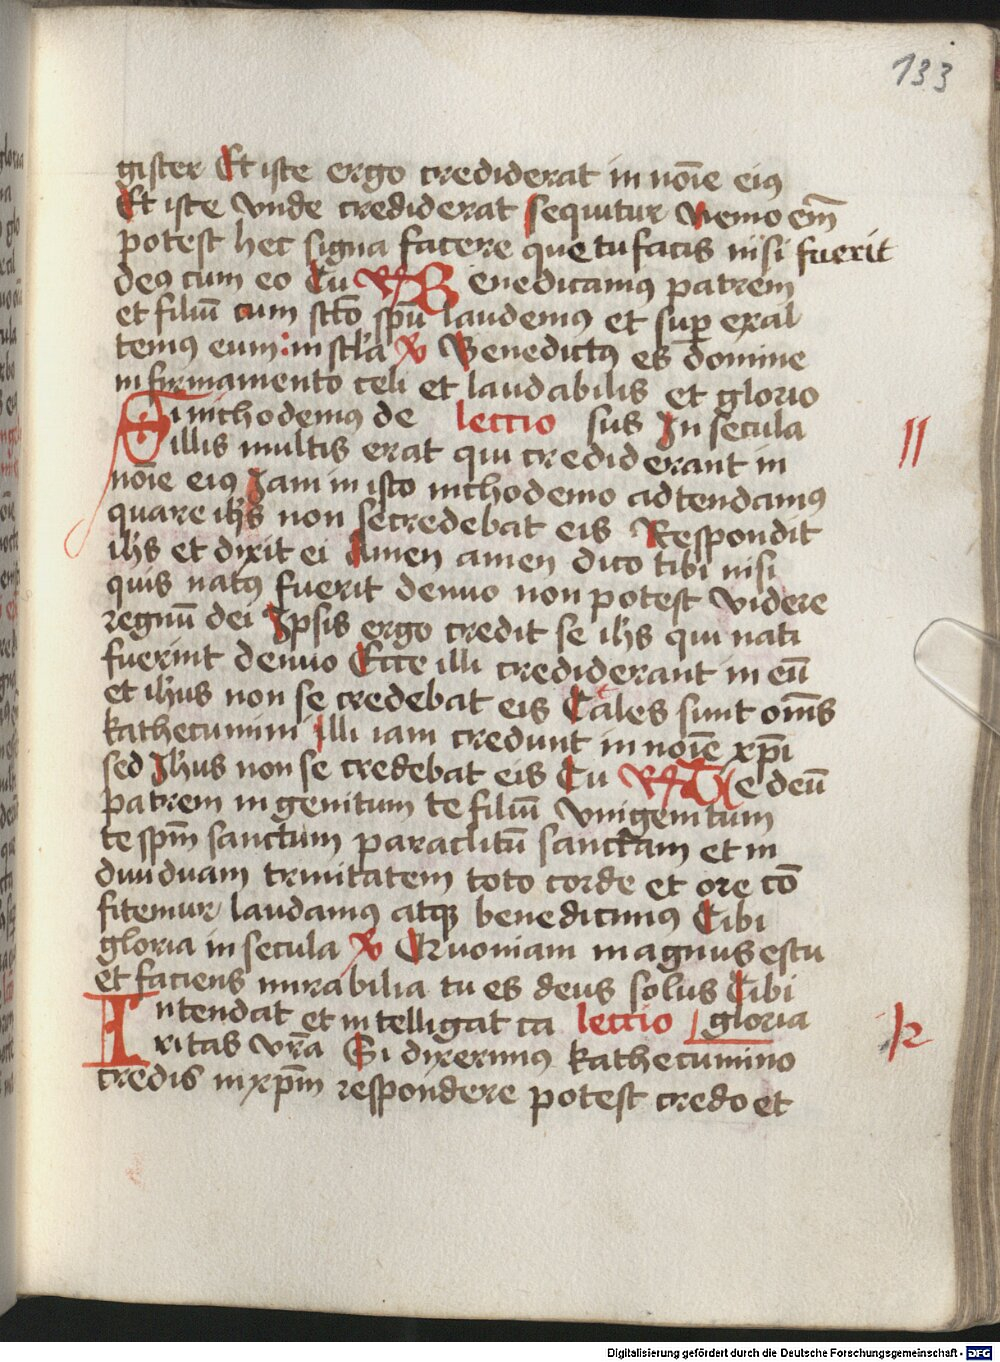 133
gister Et iste ergo crediderat in noīe eiꝰ
Et iste vnde crediderat sequitur Nemo em̄
potest hec signa facere que tu facis nisi fuerit
deꝰ cum eo Tu R̸ Benedicamꝰ patrem
et filiū cum sc̄to spū laudemꝰ et suꝑ exal
temꝰ eum : in sc̄la V̸ Benedictꝰ es domine
in firmamento celi et laudabilis et glorio
Si nichodemꝰ de lectio sus In secula
illis multis erat qui crediderant in
noīe eiꝰ Iam in isto nichodemo adtendamꝰ
quare ih̄s non se credebat eis Respondit
ih̄s et dixit ei Amen amen dico tibi nisi
quis natꝰ fuerit denuo non potest videre
regnū dei Ipsis ergo credit se ih̄s qui nati
fuerint denuo Ecce illi crediderant in eū
et ih̄us non se credebat eis Tales sunt om̄s
kathecumini Illi iam credunt in noīe xp̄i
sed Ih̄us non se credebat eis Tu R̸ Te deū
patrem ingenitum te filiū vnigenitum
te sp̄m sanctum paraclitū sanctam et in
diuiduam trinitatem toto corde et ore cō
fitemur laudamꝰ atqꝫ benedicimꝰ Tibi
gloria in secula V̸ Quoniam magnus es tu
et faciens mirabilia tu es deus solus Tibi
Intendat et intelligat ca lectio gloria
ritas vr̄a Si dixerimꝰ kathecumino
credis in xp̄m respondere potest credo et